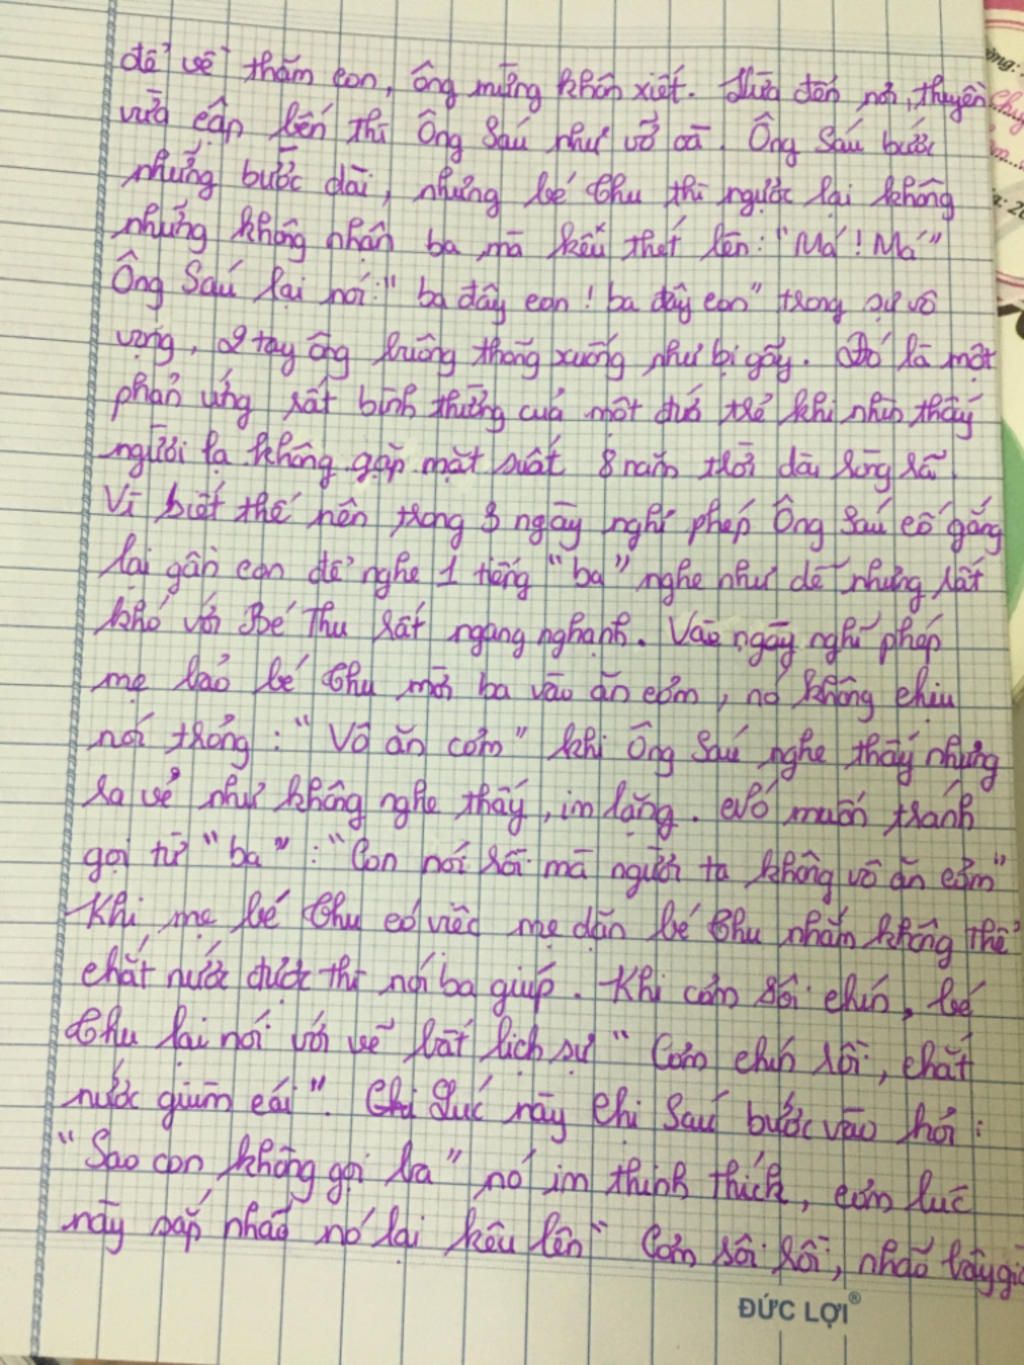 để về thăm con, ông mừng khôn xiết. Vừa đến nơi, thuyền
vừa cập bến thì Ông Sáu như vỡ oà. Ông Sáu bước
những bước dài, nhưng bé Thu thì ngược lại không
những không nhận ba mà kêu thét lên: "Má! Má"
Ông Sáu lại nói: "ba đây con! ba đây con" trong sự vô
vọng, 2 tay ông buông thõng xuống như bị gãy. Đó là một
phản ứng rất bình thường của một đứa trẻ khi nhìn thấy
người lạ không gặp mặt suốt 8 năm trời dài ròng rã.
Vì biết thế nên trong 3 ngày nghỉ phép Ông Sáu cố gắng
lại gần con để nghe 1 tiếng "ba" nghe như dễ nhưng rất
khó với Bé Thu rất ngang nghạnh. Vào ngày nghỉ phép
mẹ bảo bé Thu mời ba vào ăn cơm, nó không chịu
nói trổng: "Vô ăn cơm" khi Ông Sáu nghe thấy nhưng
ra vẻ như không nghe thấy, im lặng. Nó muốn tránh
gọi từ "ba": "Con nói rồi mà người ta không vô ăn cơm"
Khi mẹ bé Thu có việc mẹ dặn bé Thu nhắm không thể
chắt nước được thì nói ba giúp. Khi cơm sôi chín, bé
Thu lại nói với vẻ bất lịch sự "Cơm chín rồi, chắt
nước giùm cái". Lúc này chị Sáu bước vào hỏi:
"Sao con không gọi ba" nó im thinh thích, cơm lúc
này sắp nhão nó lại kêu lên "Cơm sôi rồi, nhão bây giờ
ĐỨC LỢI®